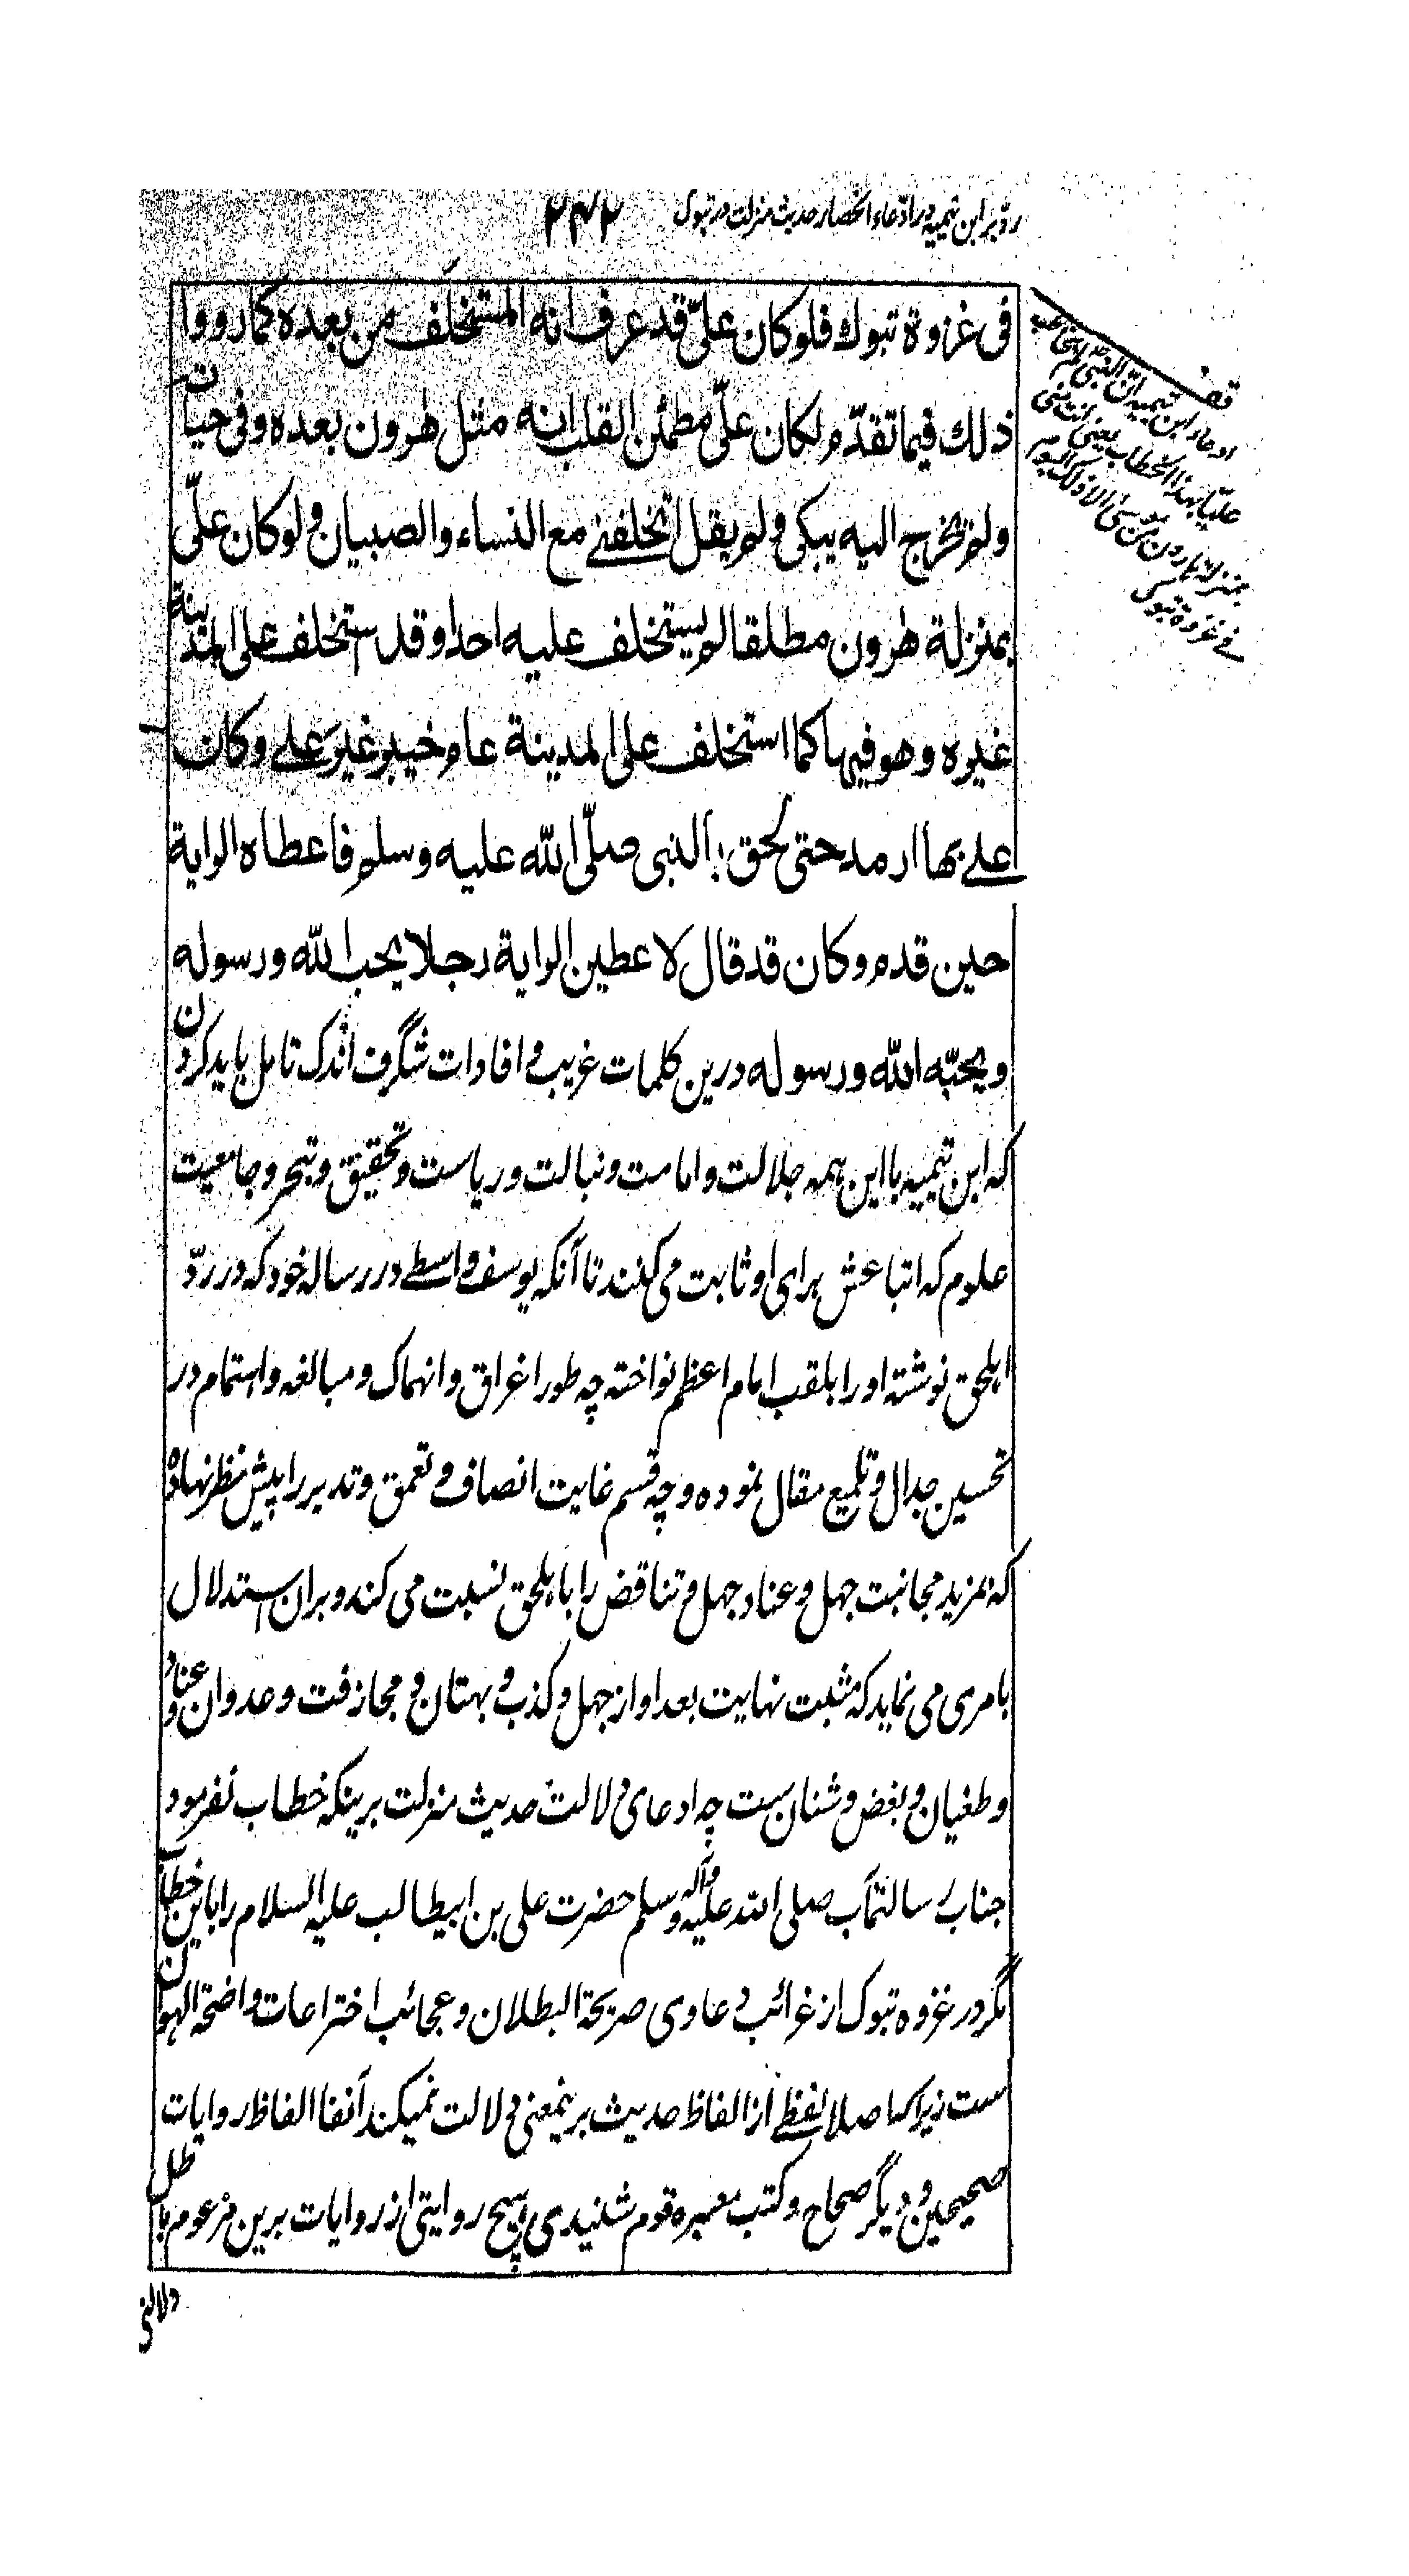 ردّ بر ابن تیمیه در ادّعاء انحصار حدیث منزلت در تبوک ۲۴۲
فی غزوة تبوك فلو كان علیّ قد عرف انه المستخلَف من بعده كما رووا
ذلك فیما تقدّم لكان علیّ مطمئن القلب انه مثل هٰرون بعده وفی حیاته
ولم یخرج الیه یبكی ولم یقل اتخلفنی مع النساء والصبیان ولو كان علیّ
بمنزلة هٰرون مطلقا لم یستخلف علیه احدا وقد استخلف علی المدینة
غیره وهو فیها كما استخلف علی المدینة عام خیبر غیرَ علی وكان
علی بها ارمد حتی لحق بالنبی صلّی الله علیه وسلم فاعطاه الرایة
حین قدم وكان قد قال لاعطین الرایة رجلا یحب الله ورسوله
ویحبّه الله ورسوله درین کلمات غریب و افادات شگرف اندک تامل باید کردن
که ابن تیمیه با این همه جلالت و امامت و نبالت و ریاست و تحقیق و تبحر و جامعیت
علوم که اتباعش برای او ثابت می کنند تا آنکه یوسف واسطی در رساله خود که در ردّ
اهلحق نوشته او را بلقب امام اعظم نواخته چه طور اغراق و انهماک و مبالغه و اهتمام در
تحسین جدال و تلمیع مقال نموده و چه قسم غایت انصاف و تعمق و تدبر را پیش نظر نهاده
که بمزید مجانبت جهل و عناد جهل و تناقض را باهلحق نسبت می کند و بران استدلال
بامری می نماید که مثبت نهایت بعد او از جهل و کذب و بهتان و مجازفت و عدوان و عناد
و طغیان و بغض و شنان ست چه ادعای دلالت حدیث منزلت برینکه خطاب نفرمود
جناب رسالتمآب صلی الله علیه وآله وسلم حضرت علی بن ابیطالب علیه السلام را باین خطاب
مگر در غزوه تبوک از غرائب دعاوی صریحة البطلان و عجائب اختراعات واضحة الهوان
ست زیرا که اصلا لفظی از الفاظ حدیث برینمعنی دلالت نمیکند آنفا الفاظ روایات
صحیحین و دیگر صحاح و کتب معتبره قوم شنیدی هیچ روایتی از روایات برین مزعوم باطل
دلالتی
قف
ادعاء ابن تیمیه انّ النبیّ لم یخاطب
علیّا بهذا الخطاب یعنی انت منی
بمنزلة هارون من موسی الا ذلک الیوم
فی غزوة تبوک